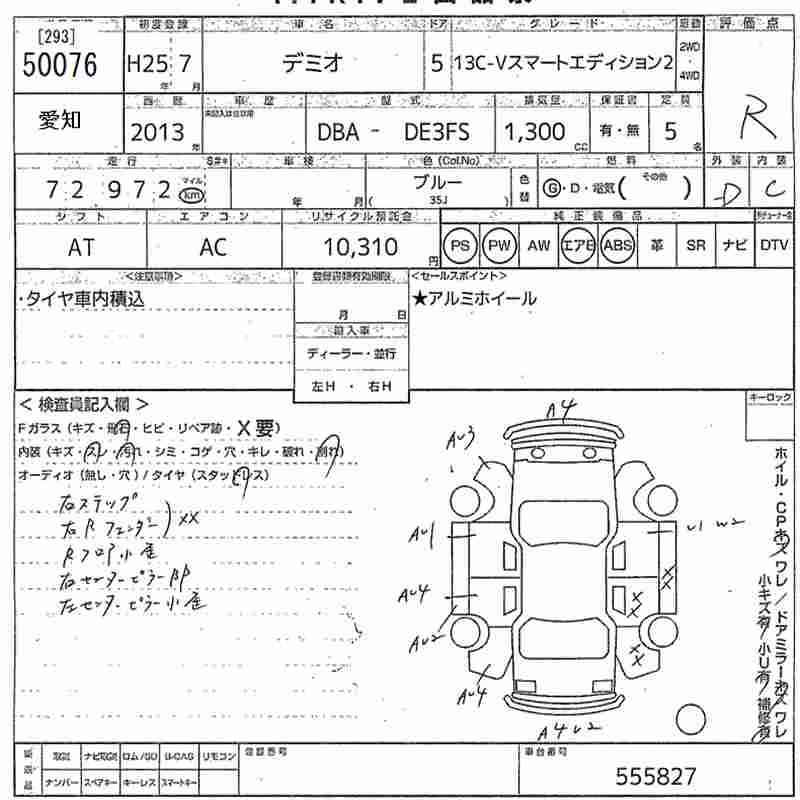 [293] 初度登録 車名 ドア グレード 駆動 評価点
50076 H25 7 デミオ 5 13C-Vスマートエディション2 2WD・4WD R
年 月
愛知 西暦 車歴 型式 排気量 保証書 定員
未記入は自家用
2013 年 DBA - DE3FS 1,300 CC 有・無 5 名
走行 S#* 車検 色(Col.No) 燃料 外装 内装
72972 マイル km 年 月 ブルー 35J 色替 G・D・電気(その他 ) D C
シフト エアコン リサイクル預託金 純正装備品
AT AC 10,310 円 PS PW AW エアB ABS 革 SR ナビ DTV
<注意事項> 登録書類有効期限 <セールスポイント>
・タイヤ車内積込 月 日 ★アルミホイール
輸入車
ディーラー・並行
左H ・ 右H
<検査員記入欄> キーロック
Fガラス(キズ・飛石・ヒビ・リペア跡・X要)
内装(キズ・スレ・汚れ・シミ・コゲ・穴・キレ・破れ・割れ)
オーディオ(無し・穴)/タイヤ(スタッドレス)
右ステップ
右Rフェンダー )XX
Rフロア小歪
右センターピラーBP
左センターピラー小歪
A4
AU3
AU1 U1 W2
AU4 XX
AU2 XX
AU4 XX
A4 U2
ホイル・CPキズ ワレ/ドアミラーキズ ワレ
小キズ有/小U有/補修有
取説 ナビ取説 ロム/SD B-CAS リモコン 登録番号 車台番号
ナンバー スペアキー キーレス スマートキー 555827